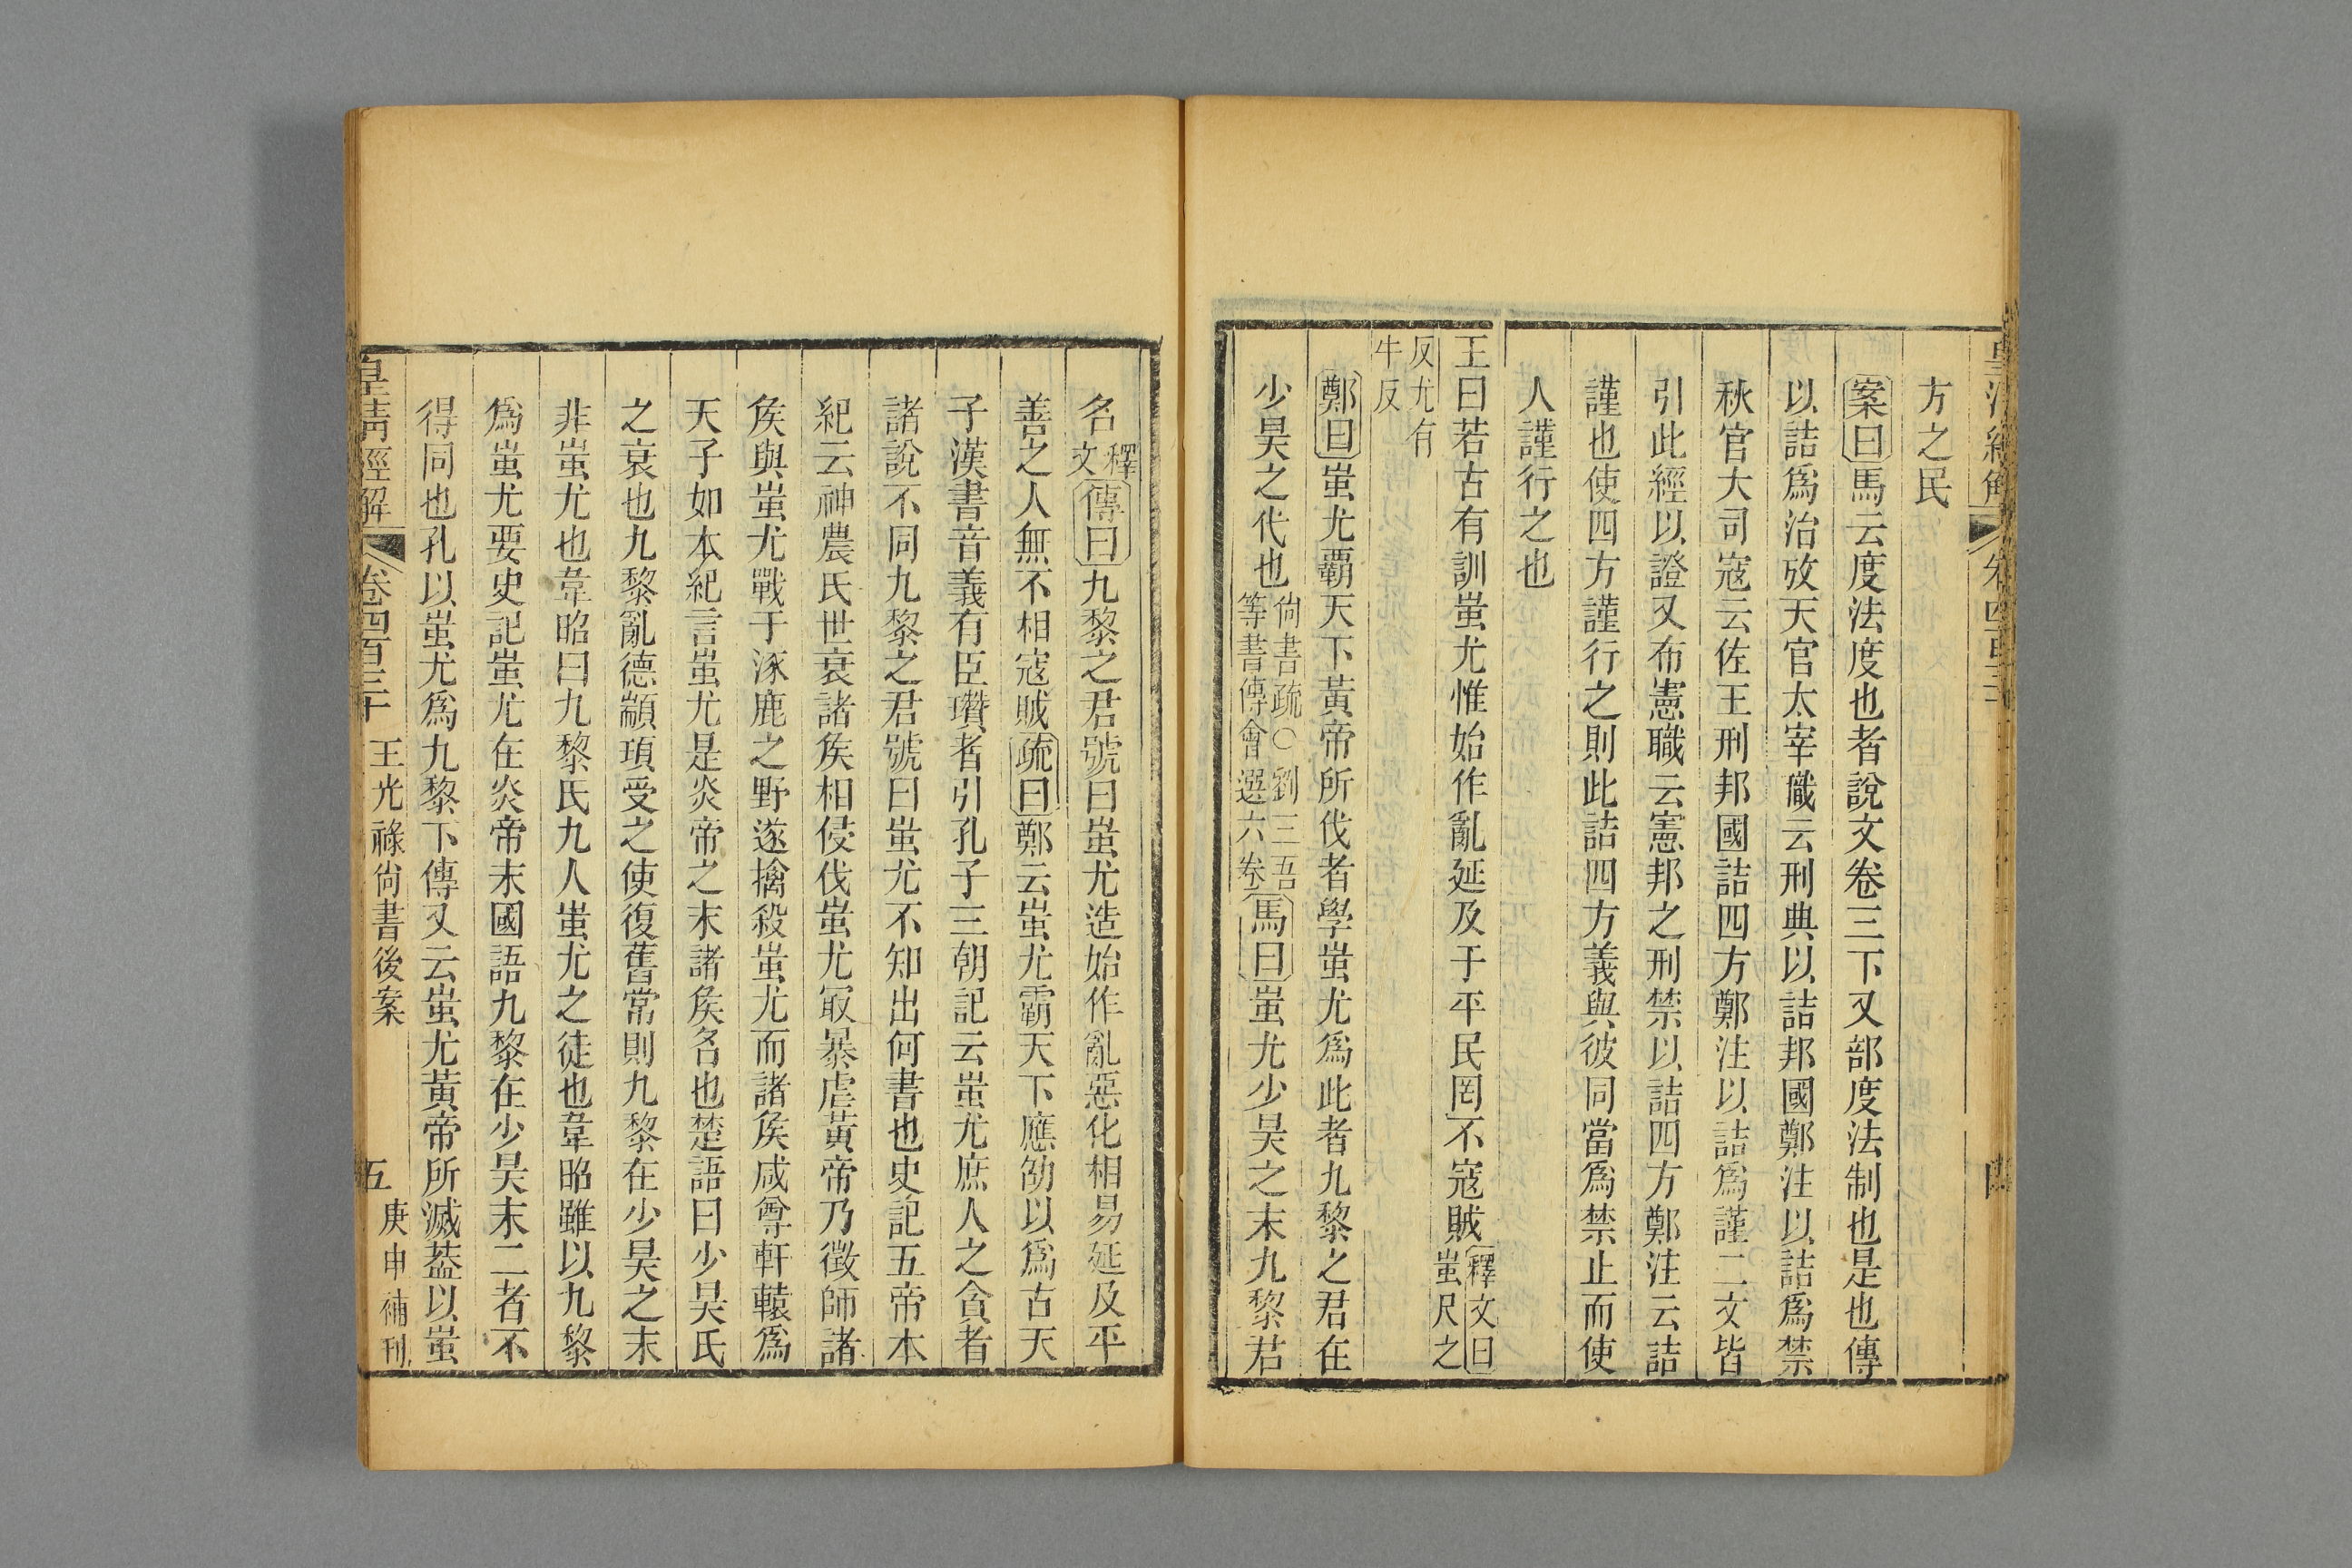 方之民
案曰馬云度法度也者說文卷三下又部度法制也是也傳
以詰爲治攷天官太宰職云刑典以詰邦國鄭注以詰爲禁
秋官大司寇云佐王刑邦國詰四方鄭注以詰爲謹二文皆
引此經以證又布憲職云憲邦之刑禁以詰四方鄭注云詰
謹也使四方謹行之則此詰四方義與彼同當爲禁止而使
人謹行之也
王曰若古有訓蚩尤惟始作亂延及于平民罔不寇賊釋文曰蚩尺之
反尤有牛反
鄭曰蚩尤覇天下黃帝所伐者學蚩尤爲此者九黎之君在
少昊之代也尙書疏○劉三吾等書傳會選六卷馬曰蚩尤少昊之末九黎君
名釋文傳曰九黎之君號曰蚩尤造始作亂惡化相易延及平
善之人無不相寇賊疏曰鄭云蚩尤霸天下應劭以爲古天
子漢書音義有臣瓚者引孔子三朝記云蚩尤庶人之貪者
諸說不同九黎之君號曰蚩尤不知出何書也史記五帝本
紀云神農氏世衰諸侯相侵伐蚩尤冣暴虐黃帝乃徵師諸
侯與蚩尤戰于涿鹿之野遂擒殺蚩尤而諸侯咸尊軒轅爲
天子如本紀言蚩尤是炎帝之末諸侯名也楚語曰少昊氏
之衰也九黎亂德顓頊受之使復舊常則九黎在少昊之末
非蚩尤也韋昭曰九黎氏九人蚩尤之徒也韋昭雖以九黎
爲蚩尤要史記蚩尤在炎帝末國語九黎在少昊末二者不
得同也孔以蚩尤爲九黎下傳又云蚩尤黃帝所滅葢以蚩
皇清經解 卷四百三十 王光祿尙書後案 五 庚申補刊